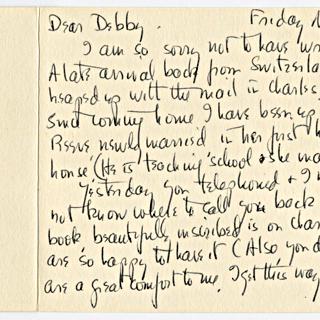 Dear Debby. Friday
I am so sorry not to have
A late arrival back from Switzerla
heaped up with the mail in charles
Since coming home I have been up
newly married in her first h
house (He is teaching school & she ma
Yesterday you telephoned & I
not know where to call you back
book, beautifully inscribed is on char
are so happy to have it (Also, you d
are a great comfort to me. I get this way